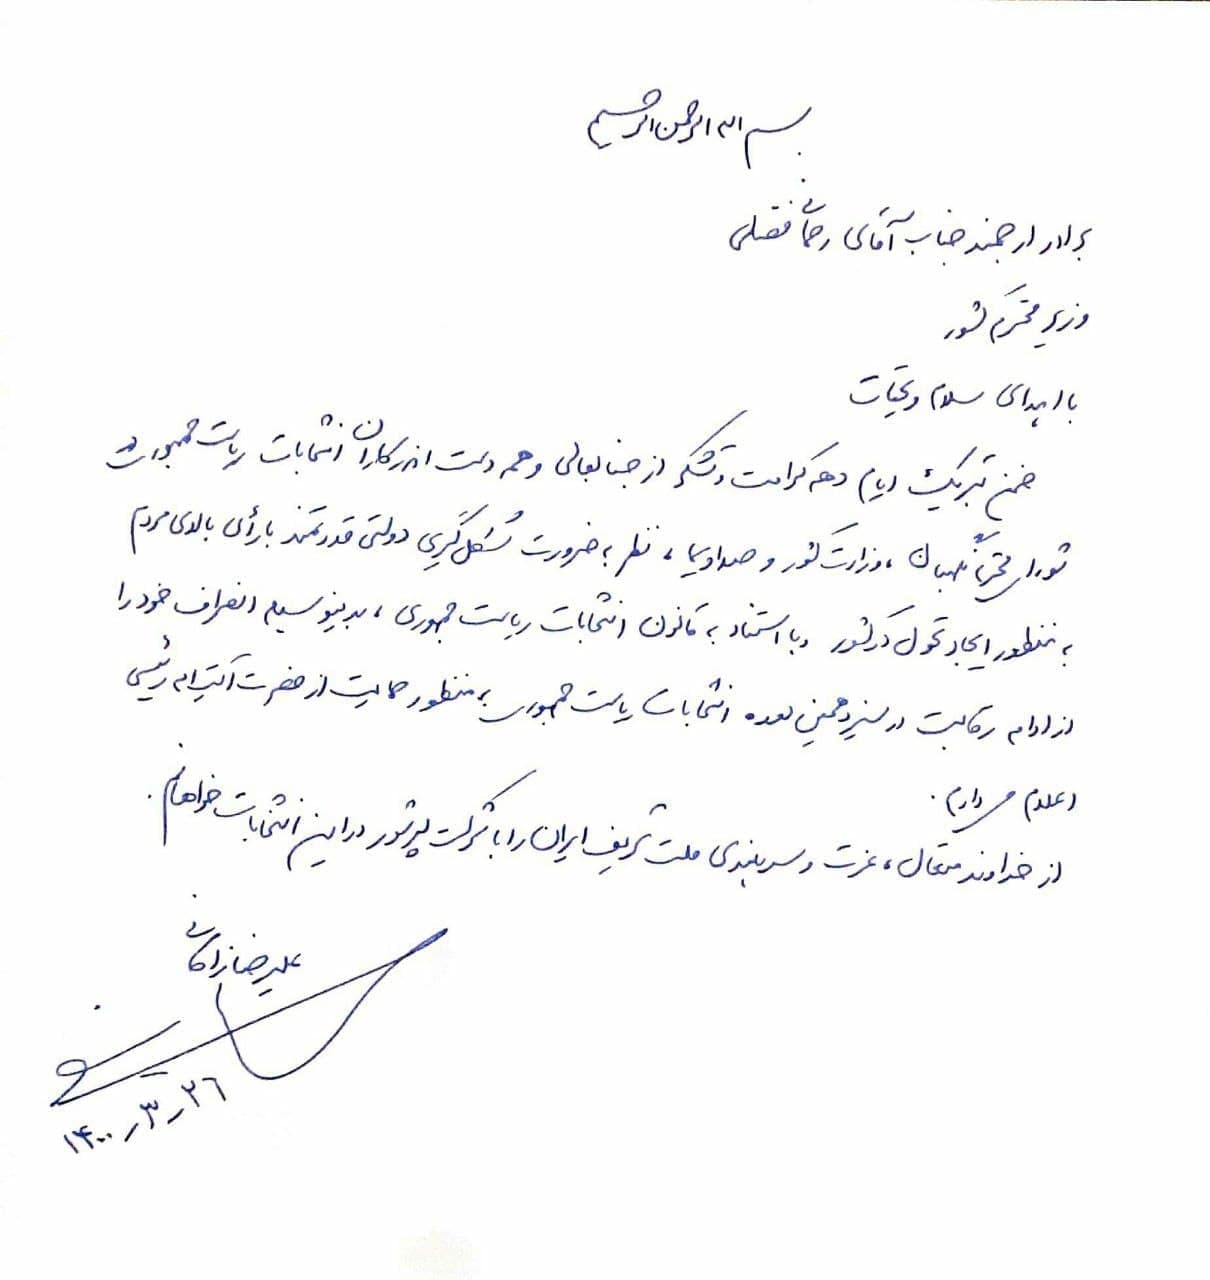 بسم الله الرحمن الرحیم
برادر ارجمند جناب آقای رحمانی فضلی
وزیر محترم کشور
با اهدای سلام و تحیات
ضمن تبریک ایام دهه کرامت و تشکر از جنابعالی و همه دست اندرکاران انتخابات ریاست جمهوری در
شورای محترم نگهبان، وزارت کشور و صداوسیما، نظر به ضرورت شکل‌گیری دولتی قدرتمند با رأی بالای مردم
به منظور ایجاد تحول در کشور و با استناد به قانون انتخابات ریاست جمهوری، بدینوسیله انصراف خود را
از ادامه رقابت در سیزدهمین دوره انتخابات ریاست جمهوری به منظور حمایت از حضرت آیت اله رئیسی
اعلام می دارم.
از خداوند متعال، عزت و سربلندی ملت شریف ایران را با شرکت پرشور در این انتخابات خواهانم.
علیرضا زاکانی
۱۴۰۰/۳/۲۶